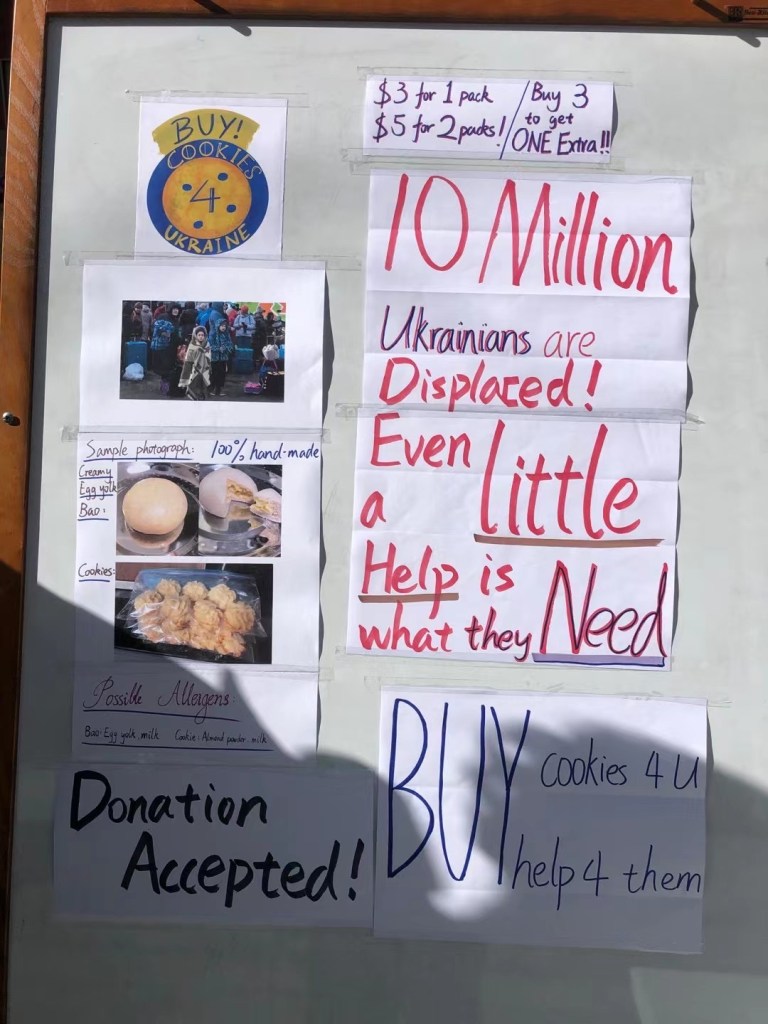 BUY!
COOKIES
4
UKRAINE
$3 for 1 pack
$5 for 2 packs!
Buy 3
to get
ONE Extra!!
10 Million
Ukrainians are
Displaced!
Even
a little
Help is
what they Need
Sample photograph: 100% hand-made
Creamy
Egg yolk
Bao:
Cookies:
Possible Allergens:
Bao: Egg yolk, milk Cookie: Almond powder, milk
Donation
Accepted!
BUY cookies 4 U
help 4 them